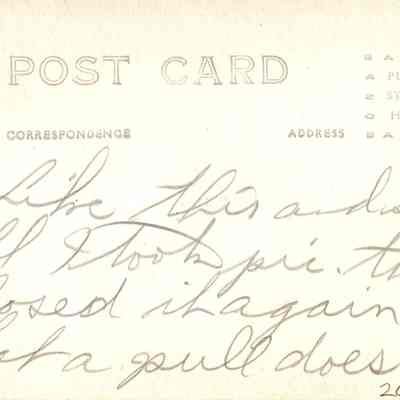 POST CARD
CORRESPONDENCE ADDRESS
Like this and
I took pic. 
osed it again
a pull does
20